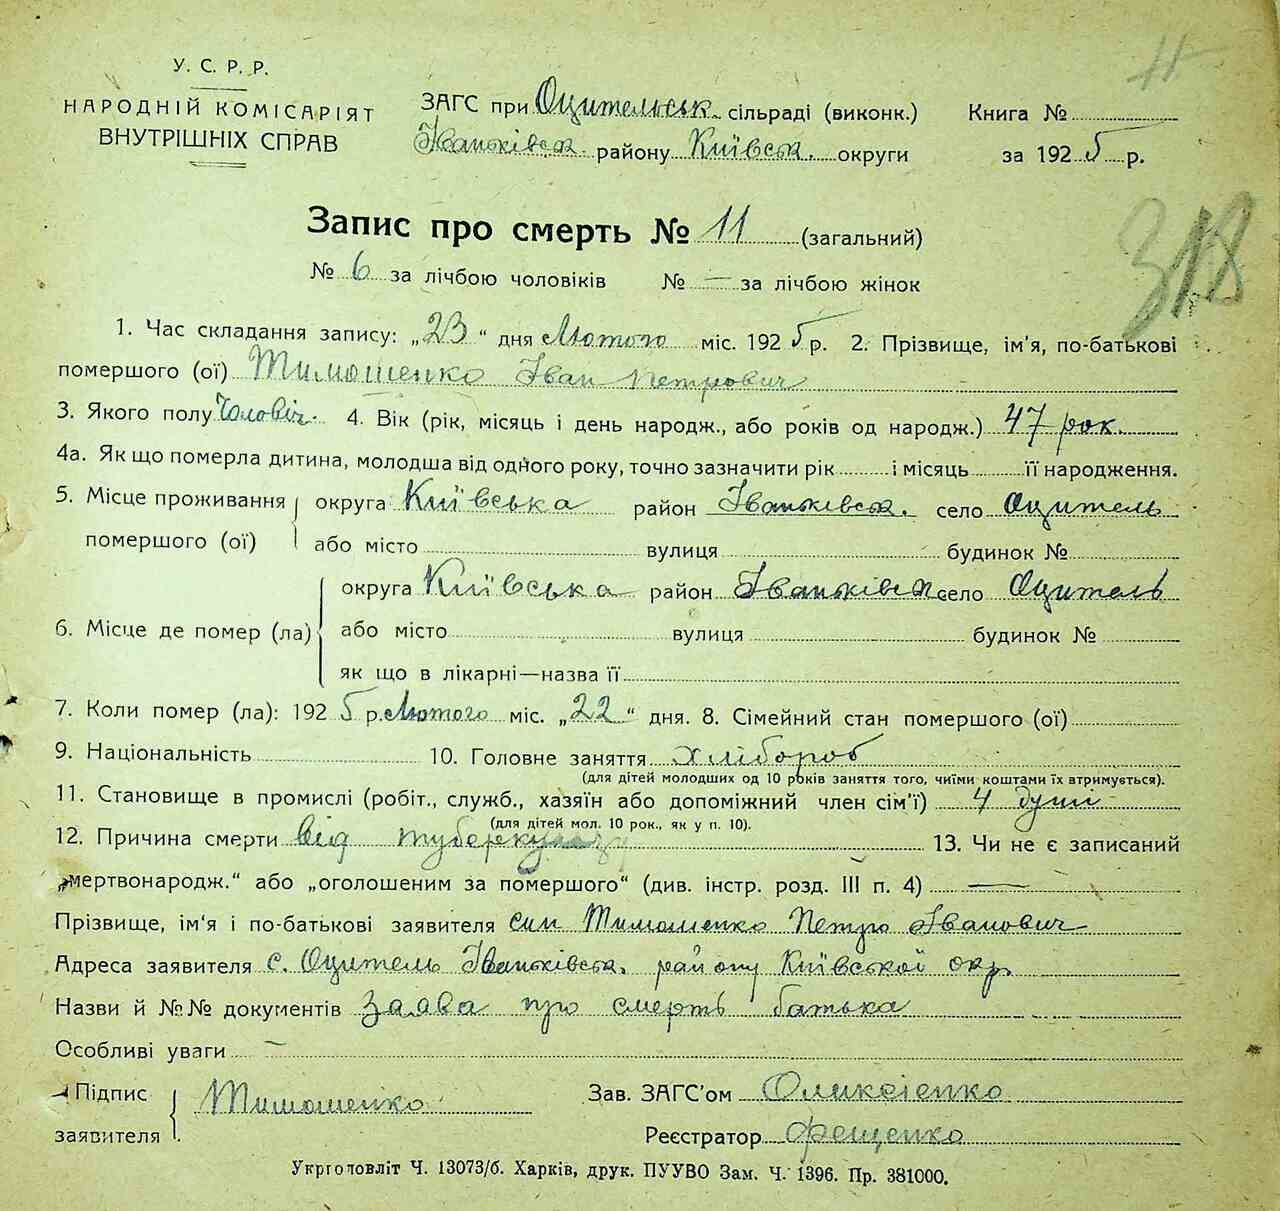 У. С. Р. Р.
НАРОДНІЙ КОМІСАРІЯТ
ВНУТРІШНІХ СПРАВ
ЗАГС при Оцительськ. сільраді (виконк.)
Іваньківськ. району Київськ. округи
Книга №
за 1925 р.
318
Запис про смерть № 11 (загальний)
№ 6 за лічбою чоловіків № — за лічбою жінок
1. Час складання запису: „23“ дня Лютого міс. 1925 р. 2. Прізвище, ім'я, по-батькові
помершого (ої) Тимошенко Іван Петрович
3. Якого полу Чоловіч. 4. Вік (рік, місяць і день народж., або років од народж.) 47 рок.
4а. Як що померла дитина, молодша від одного року, точно зазначити рік і місяць її народження.
5. Місце проживання округа Київська район Іваньківськ. село Оцитель
помершого (ої) або місто вулиця будинок №
округа Київська район Іваньківськ село Оцитель
6. Місце де помер (ла) або місто вулиця будинок №
як що в лікарні—назва її
7. Коли помер (ла): 1925 р. Лютого міс. „22“ дня. 8. Сімейний стан помершого (ої)
9. Національність 10. Головне заняття хлібороб
(для дітей молодших од 10 років заняття того, чиїми коштами їх втримується).
11. Становище в промислі (робіт., служб., хазяїн або допоміжний член сім'ї) 4 душі
(для дітей мол. 10 рок., як у п. 10).
12. Причина смерти від туберкульозу 13. Чи не є записаний
„мертвонародж.“ або „оголошеним за помершого“ (див. інстр. розд. III п. 4) —
Прізвище, ім'я і по-батькові заявителя син Тимошенко Петро Іванович
Адреса заявителя с. Оцитель Іваньківськ. району Київської окр.
Назви й №№ документів Заява про смерть батька
Особливі уваги —
Підпис Тимошенко Зав. ЗАГС'ом Оликсієнко
заявителя Реєстратор Фещенко
Укрголовліт Ч. 13073/б. Харків, друк. ПУУВО Зам. Ч. 1396. Пр. 381000.